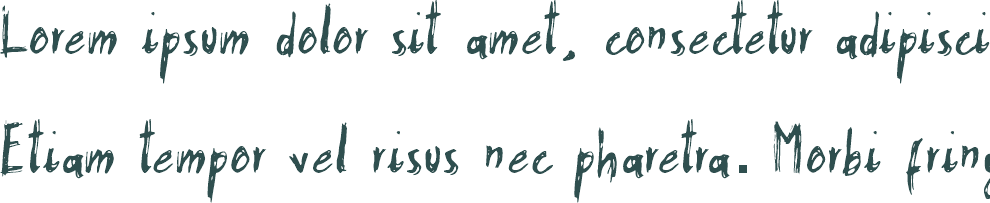 Lorem ipsum dolor sit amet, consectetur adipisci
Etiam tempor vel risus nec pharetra. Morbi fring